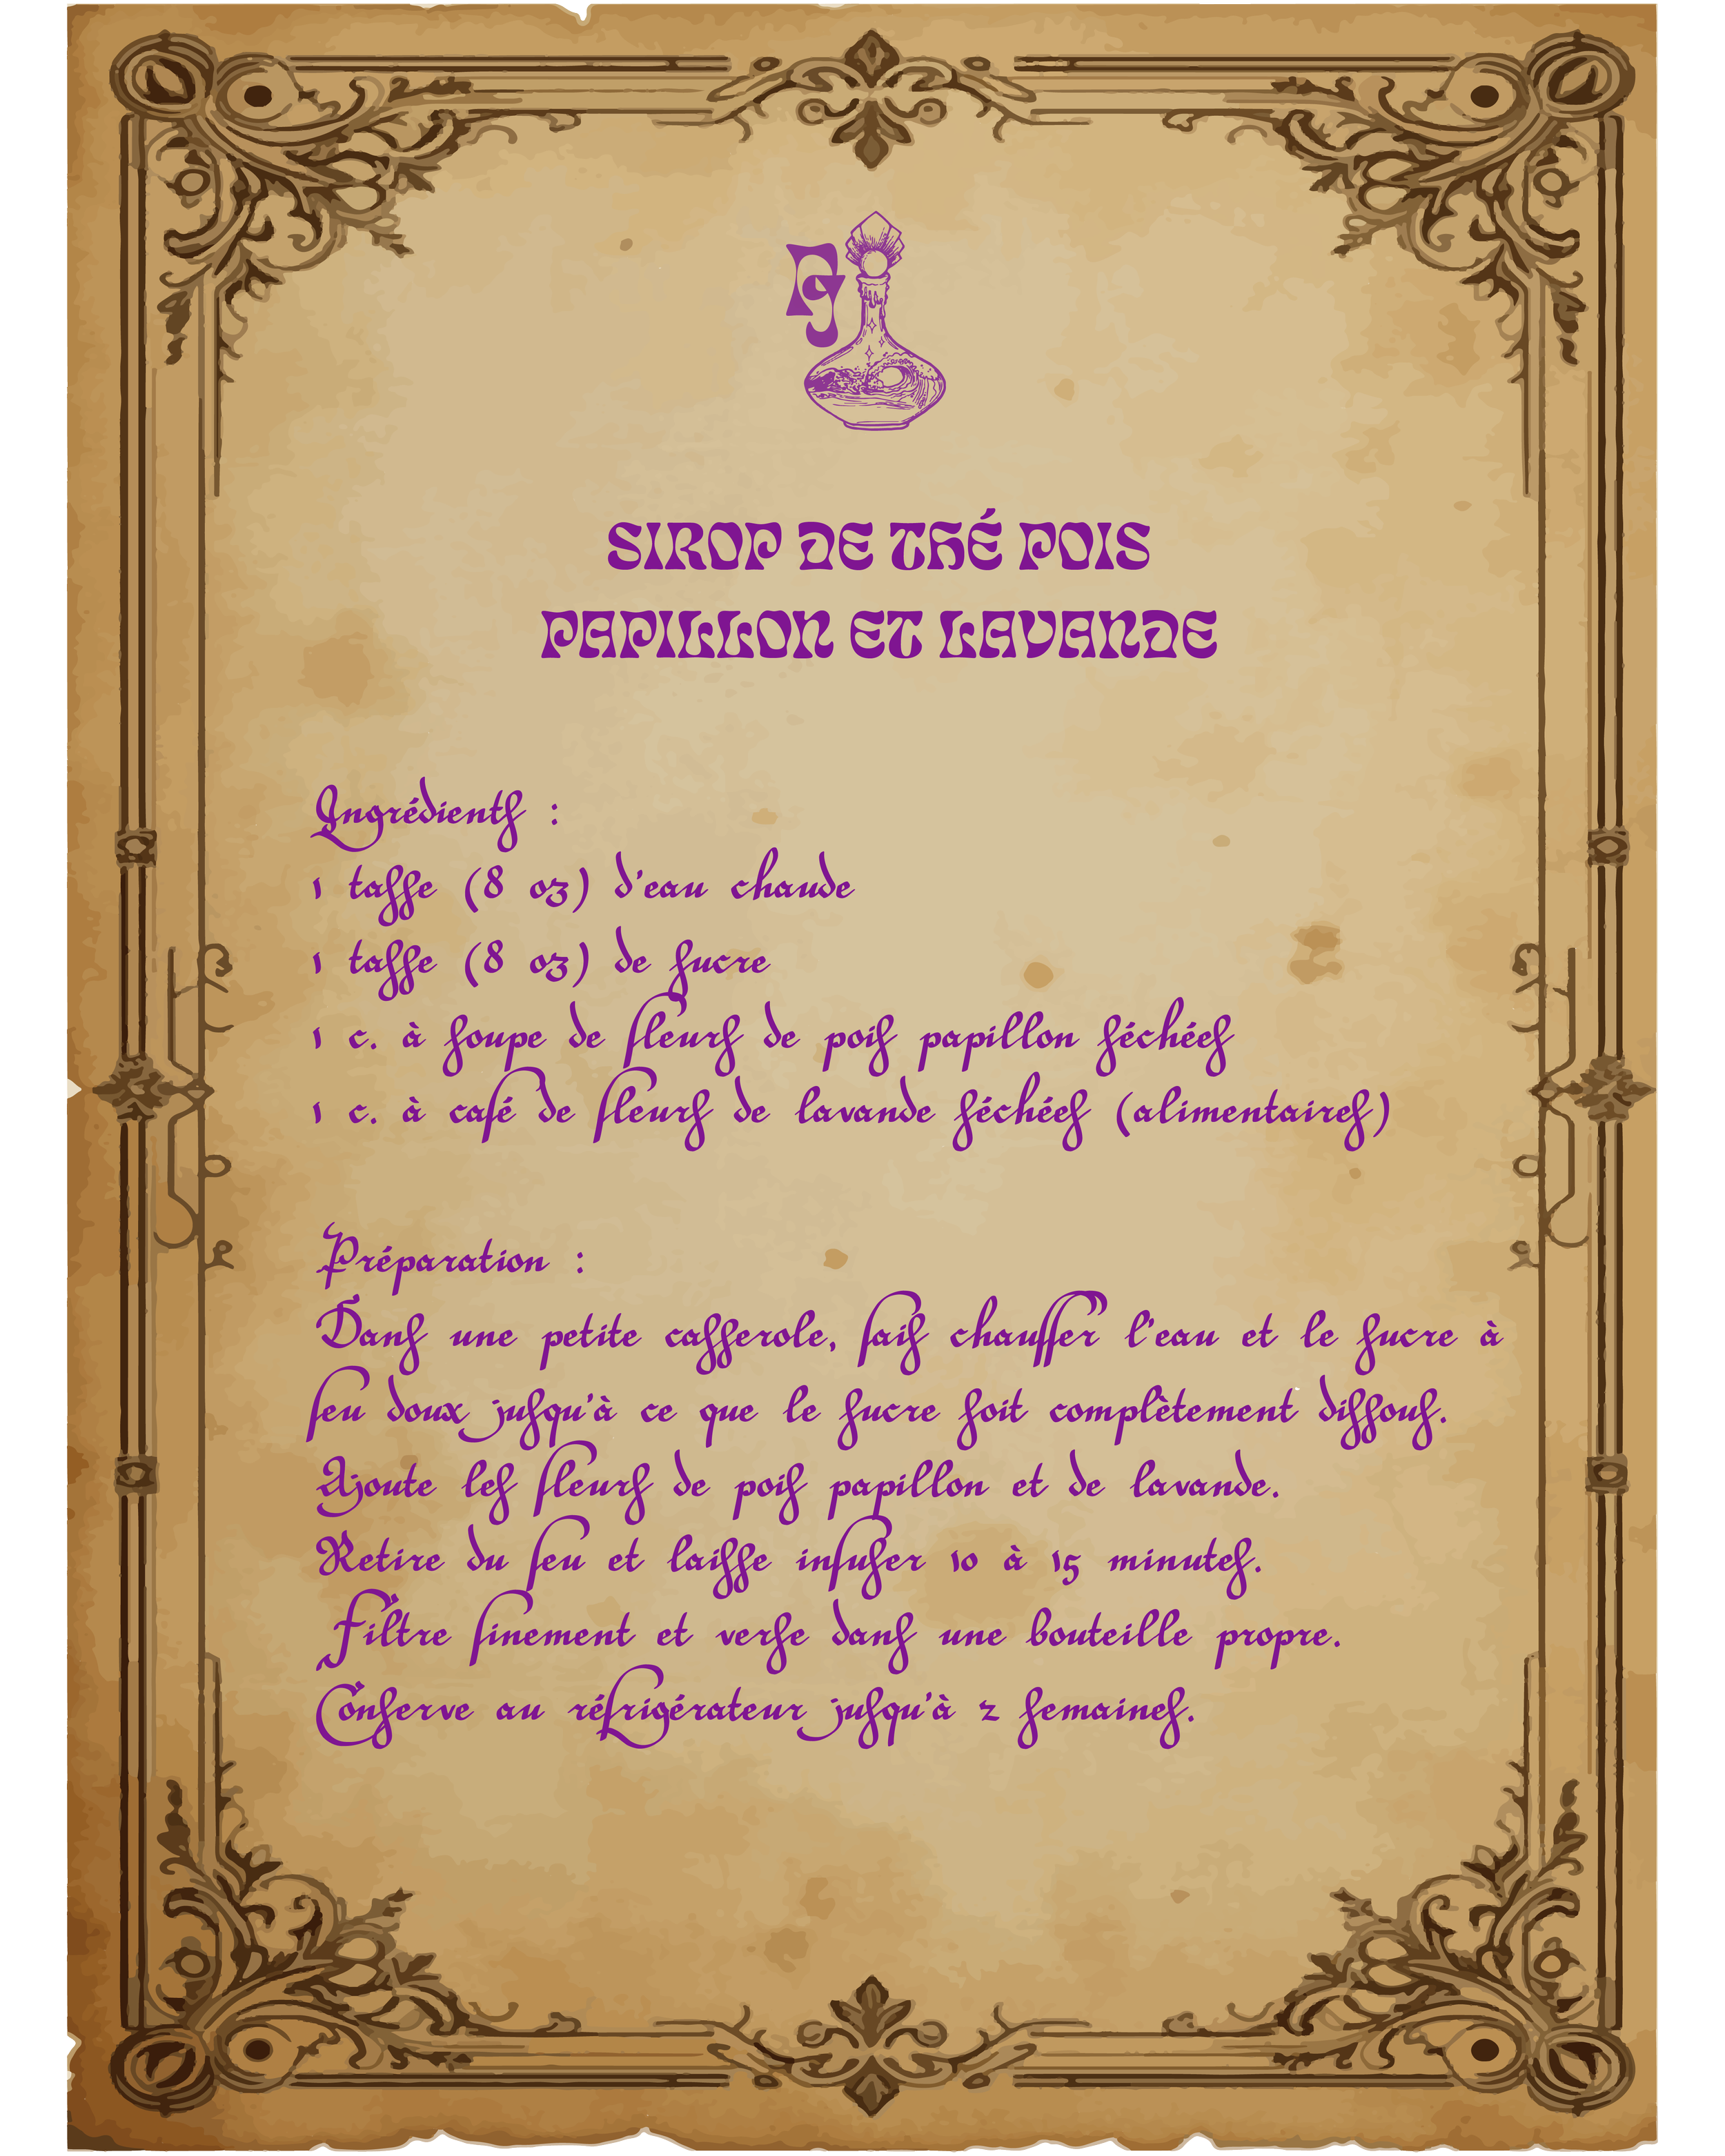 SIROP DE THÉ POIS
PAPILLON ET LAVANDE
Ingrédients :
1 tasse (8 oz) d'eau chaude
1 tasse (8 oz) de sucre
1 c. à soupe de fleurs de pois papillon séchées
1 c. à café de fleurs de lavande séchées (alimentaires)
Préparation :
Dans une petite casserole, fais chauffer l'eau et le sucre à
feu doux jusqu'à ce que le sucre soit complètement dissous.
Ajoute les fleurs de pois papillon et de lavande.
Retire du feu et laisse infuser 10 à 15 minutes.
Filtre finement et verse dans une bouteille propre.
Conserve au réfrigérateur jusqu'à 2 semaines.